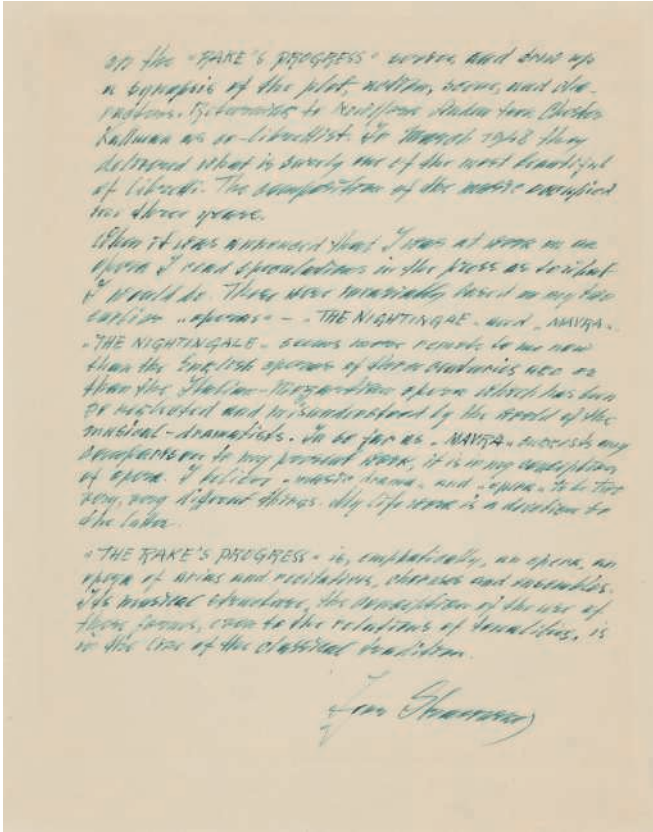 on the "RAKE'S PROGRESS" series, and drew up
a synopsis of the plot, action, scene, and cha-
racters. Returning to New York Auden took Chester
Kallman as co-librettist. In March 1948 they
delivered what is surely one of the most beautiful
of libretti. The composition of the music occupied
me three years.
When it was announced that I was at work on an
opera I read speculations in the press as to what
I would do. These were invariably based on my two
earlier "operas" – "THE NIGHTINGAE" and "MAVRA".
"THE NIGHTINGALE" seems more remote to me now
than the English operas of three centuries ago or
than the Italian-Mozartian opera which has been
so neglected and misunderstood by the world of the
musical-dramatists. In so far as "MAVRA" suggests any
comparison to my present work, it is in my conception
of opera. I believe "music drama" and "opera" to be two
very, very different things. My life work is a devotion to
the latter.
"THE RAKE'S PROGRESS" is, emphatically, an opera, an
opera of arias and recitatives, choruses and ensembles.
Its musical structure, the conception of the use of
these forms, even to the relations of tonalities, is
in the line of the classical tradition.
Igor Stravinsky